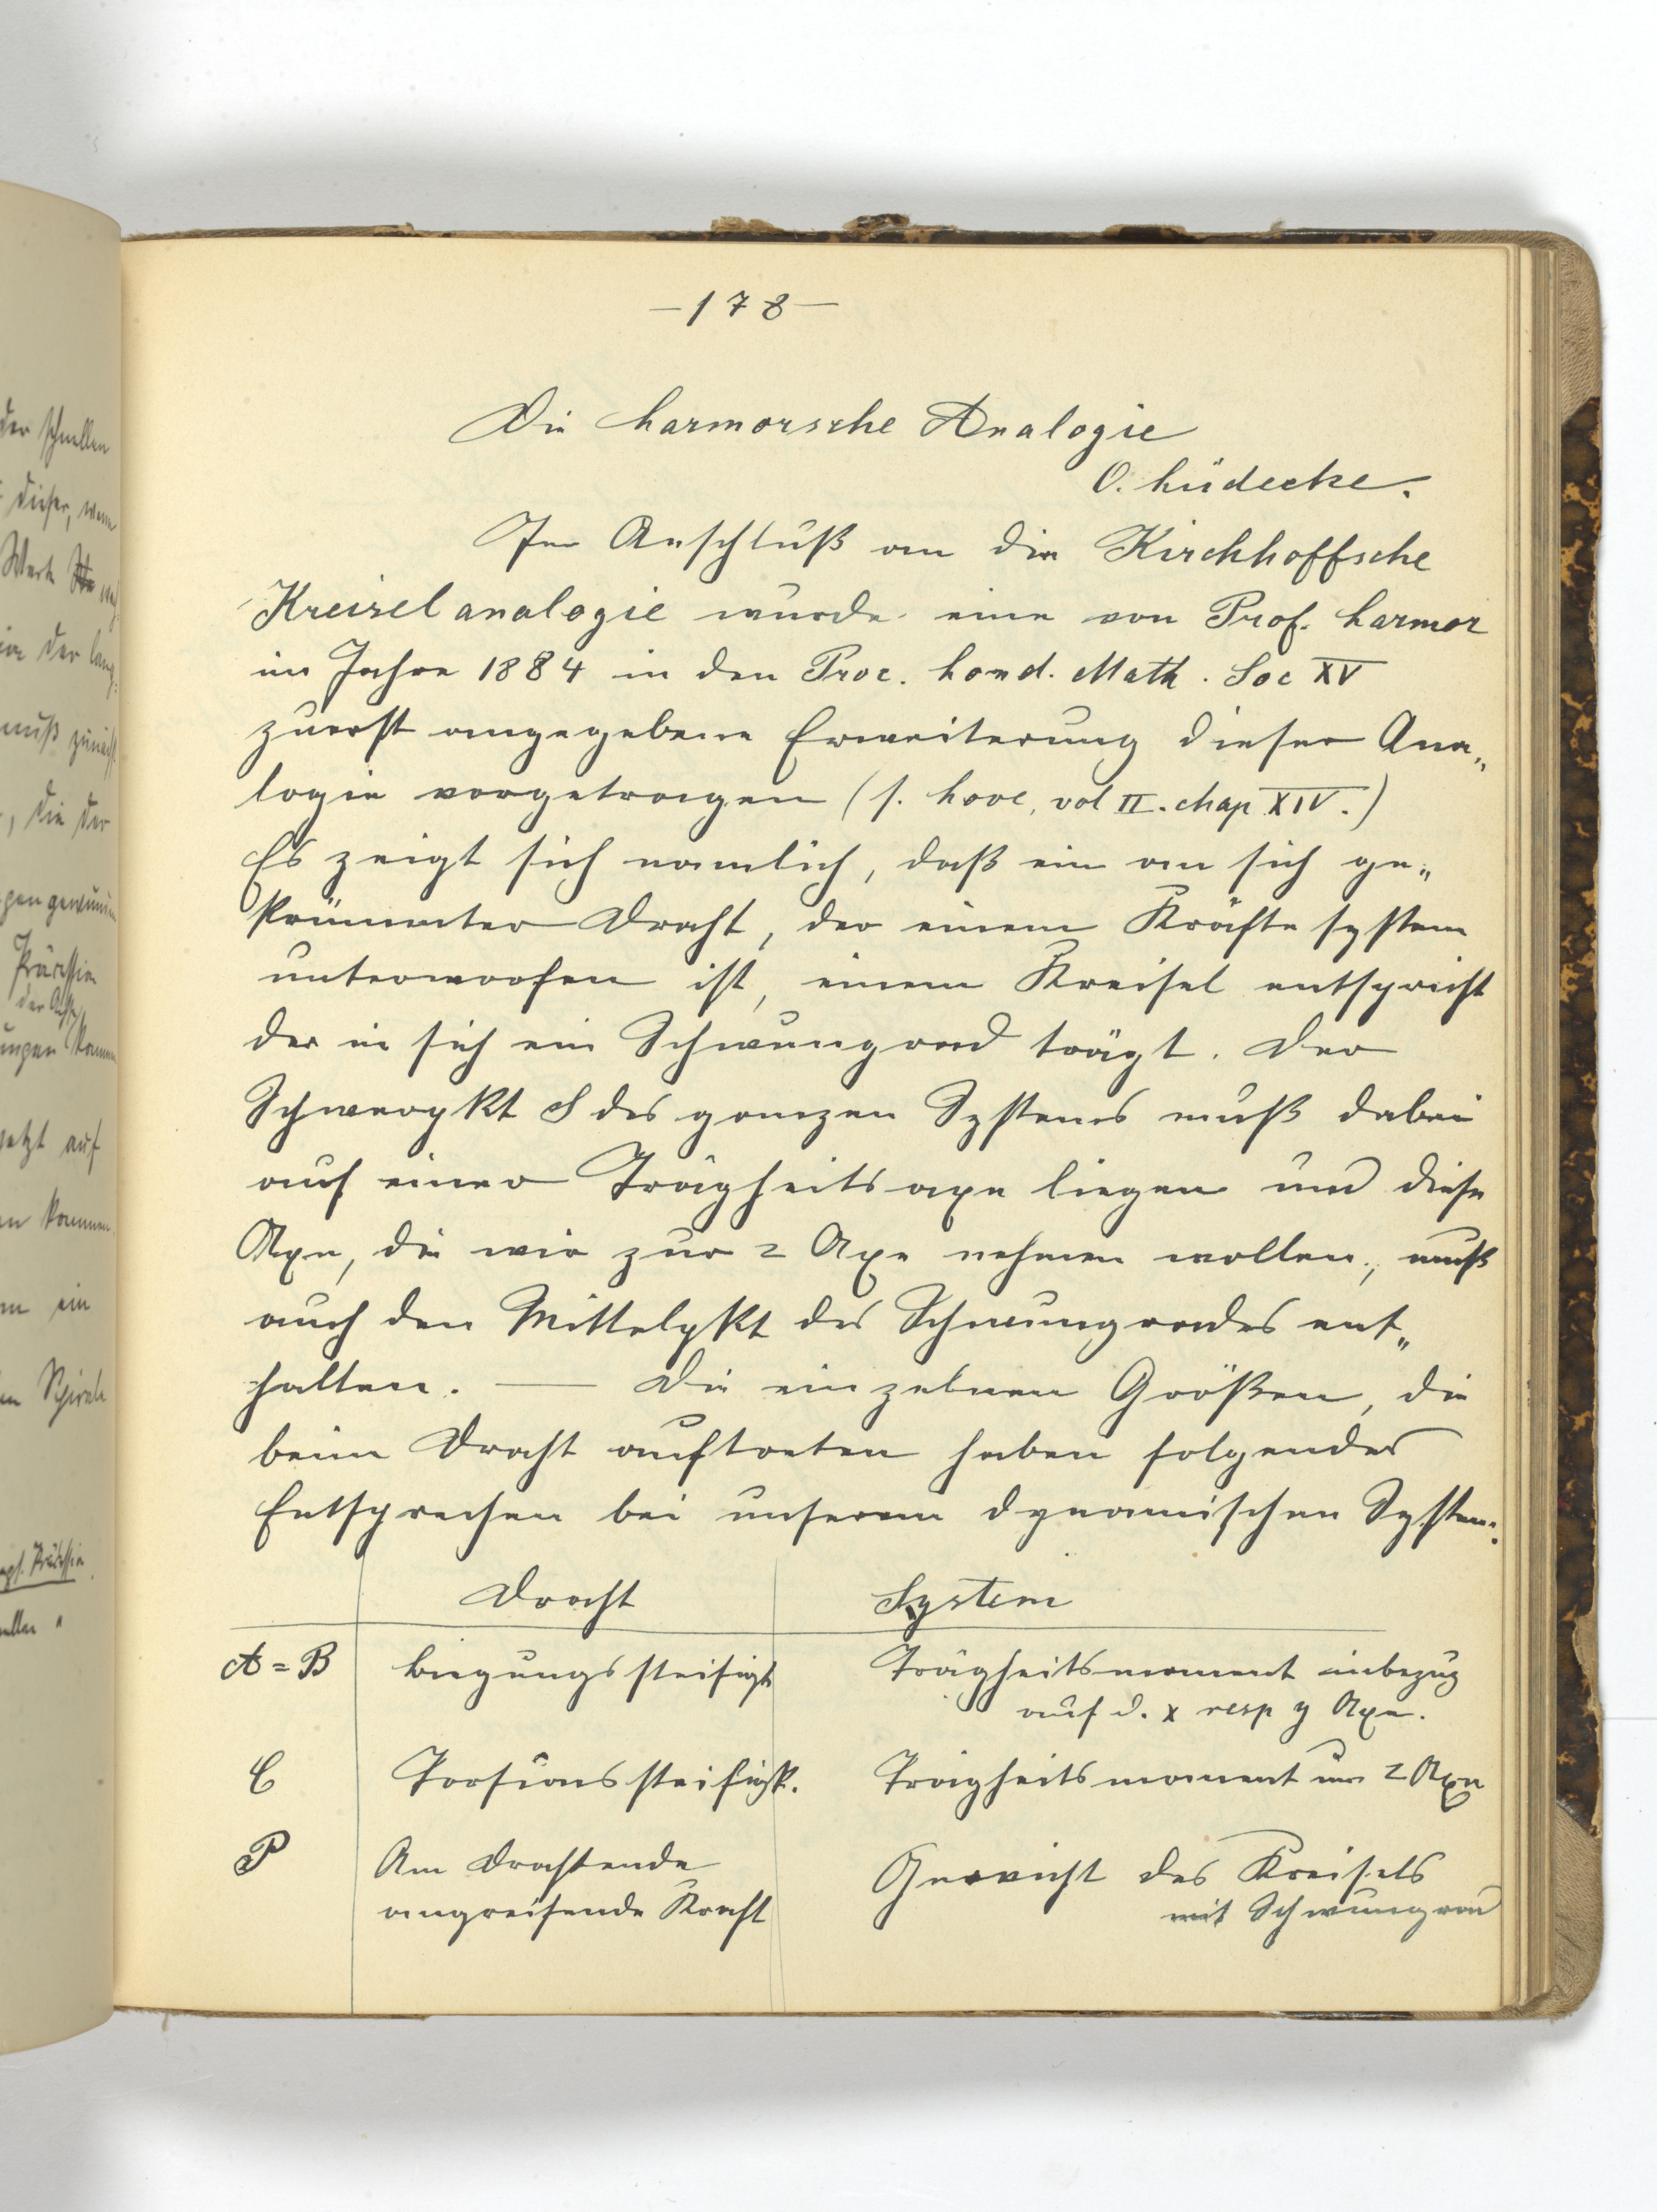 der schnellen
dieser, wenn
Wert
in der lang-
muß zunächst
, die der
gen gewunden
Präzession
der Achse
ungen kommen
jetzt auf
en kommen
ein
Spirale
Präzession
— 178 —
Die Larmorsche Analogie
O. Lüdecke.
Im Anschluß an die Kirchhoffsche
Kreiselanalogie wurde eine von Prof. Larmor
im Jahre 1884 in den Proc. Lond. Math. Soc XV
zuerst angegebene Erweiterung dieser Ana„
logie vorgetragen (s. Love, vol II. chap XIV.)
Es zeigt sich namlich, daß ein an sich ge„
krümmter Draht, der einem Kräftesystem
unterworfen ist, einem Kreisel entspricht
der in sich ein Schwungrad trägt. Der
Schwerpkt S des ganzen Systems muß dabei
auf einer Trägheitsaxe liegen und diese
Axe, die wir zur z Axe nehmen wollen, muß
auch den Mittelpkt des Schwungrades ent„
halten. — Die einzelnen Größen, die
beim Draht auftreten haben folgendes
Entsprechen bei unserem dynamischen System:
Draht System
A = B Biegungssteifigkt Trägheitsmoment inbezug
auf d. x resp y Axe.
C Torsionssteifigk. Trägheitsmoment um z Axe
P Am Drahtende Gewicht des Kreisels
angreifende Kraft mit Schwungrad